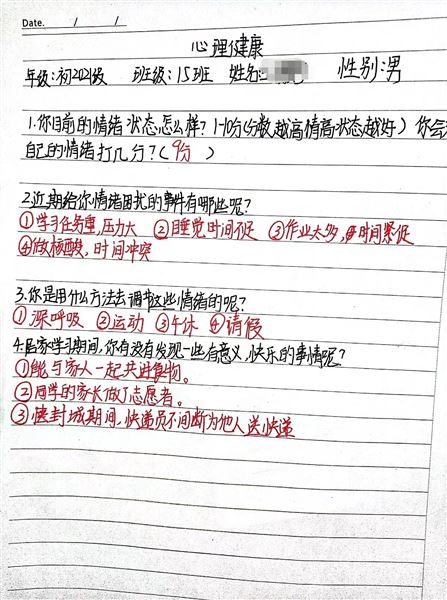 Date. / /
心理健康
年级:初2021级 班级:15班 姓名: 性别:男
1.你目前的情绪状态怎么样?1-10分(分数越高情高状态越好)你会
自己的情绪打几分?(9分)
2.近期给你情绪困扰的事件有哪些呢?
①学习任务重,压力大 ②睡觉时间不足 ③作业太多,时间紧促
④做核酸,时间冲突
3.你是用什么方法去调节这些情绪的呢?
①深呼吸 ②运动 ③午休 ④请假
4.居家学习期间,你有没有发现一些有意义,快乐的事情呢?
①能与家人一起共进食物。
②同学的家长做了志愿者。
③封城期间,快递员不间断为他人送快递